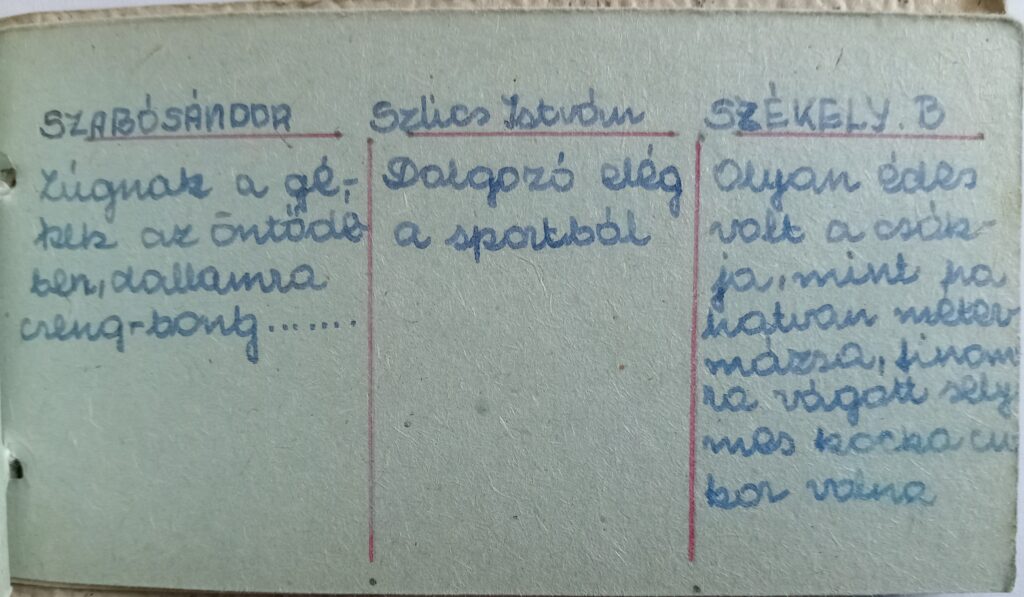 SZABÓSÁNDOR
Zúgnak a gé-
kek az öntödé
ben, dallamra
cseng-bong.......
Szűcs István
Dolgozó elég
a sportból
SZÉKELY. B
Olyan édes
volt a csók-
ja, mint ha
hatvan méter
mázsa, finom
ra vágott sely
mes kocka cu
kor volna